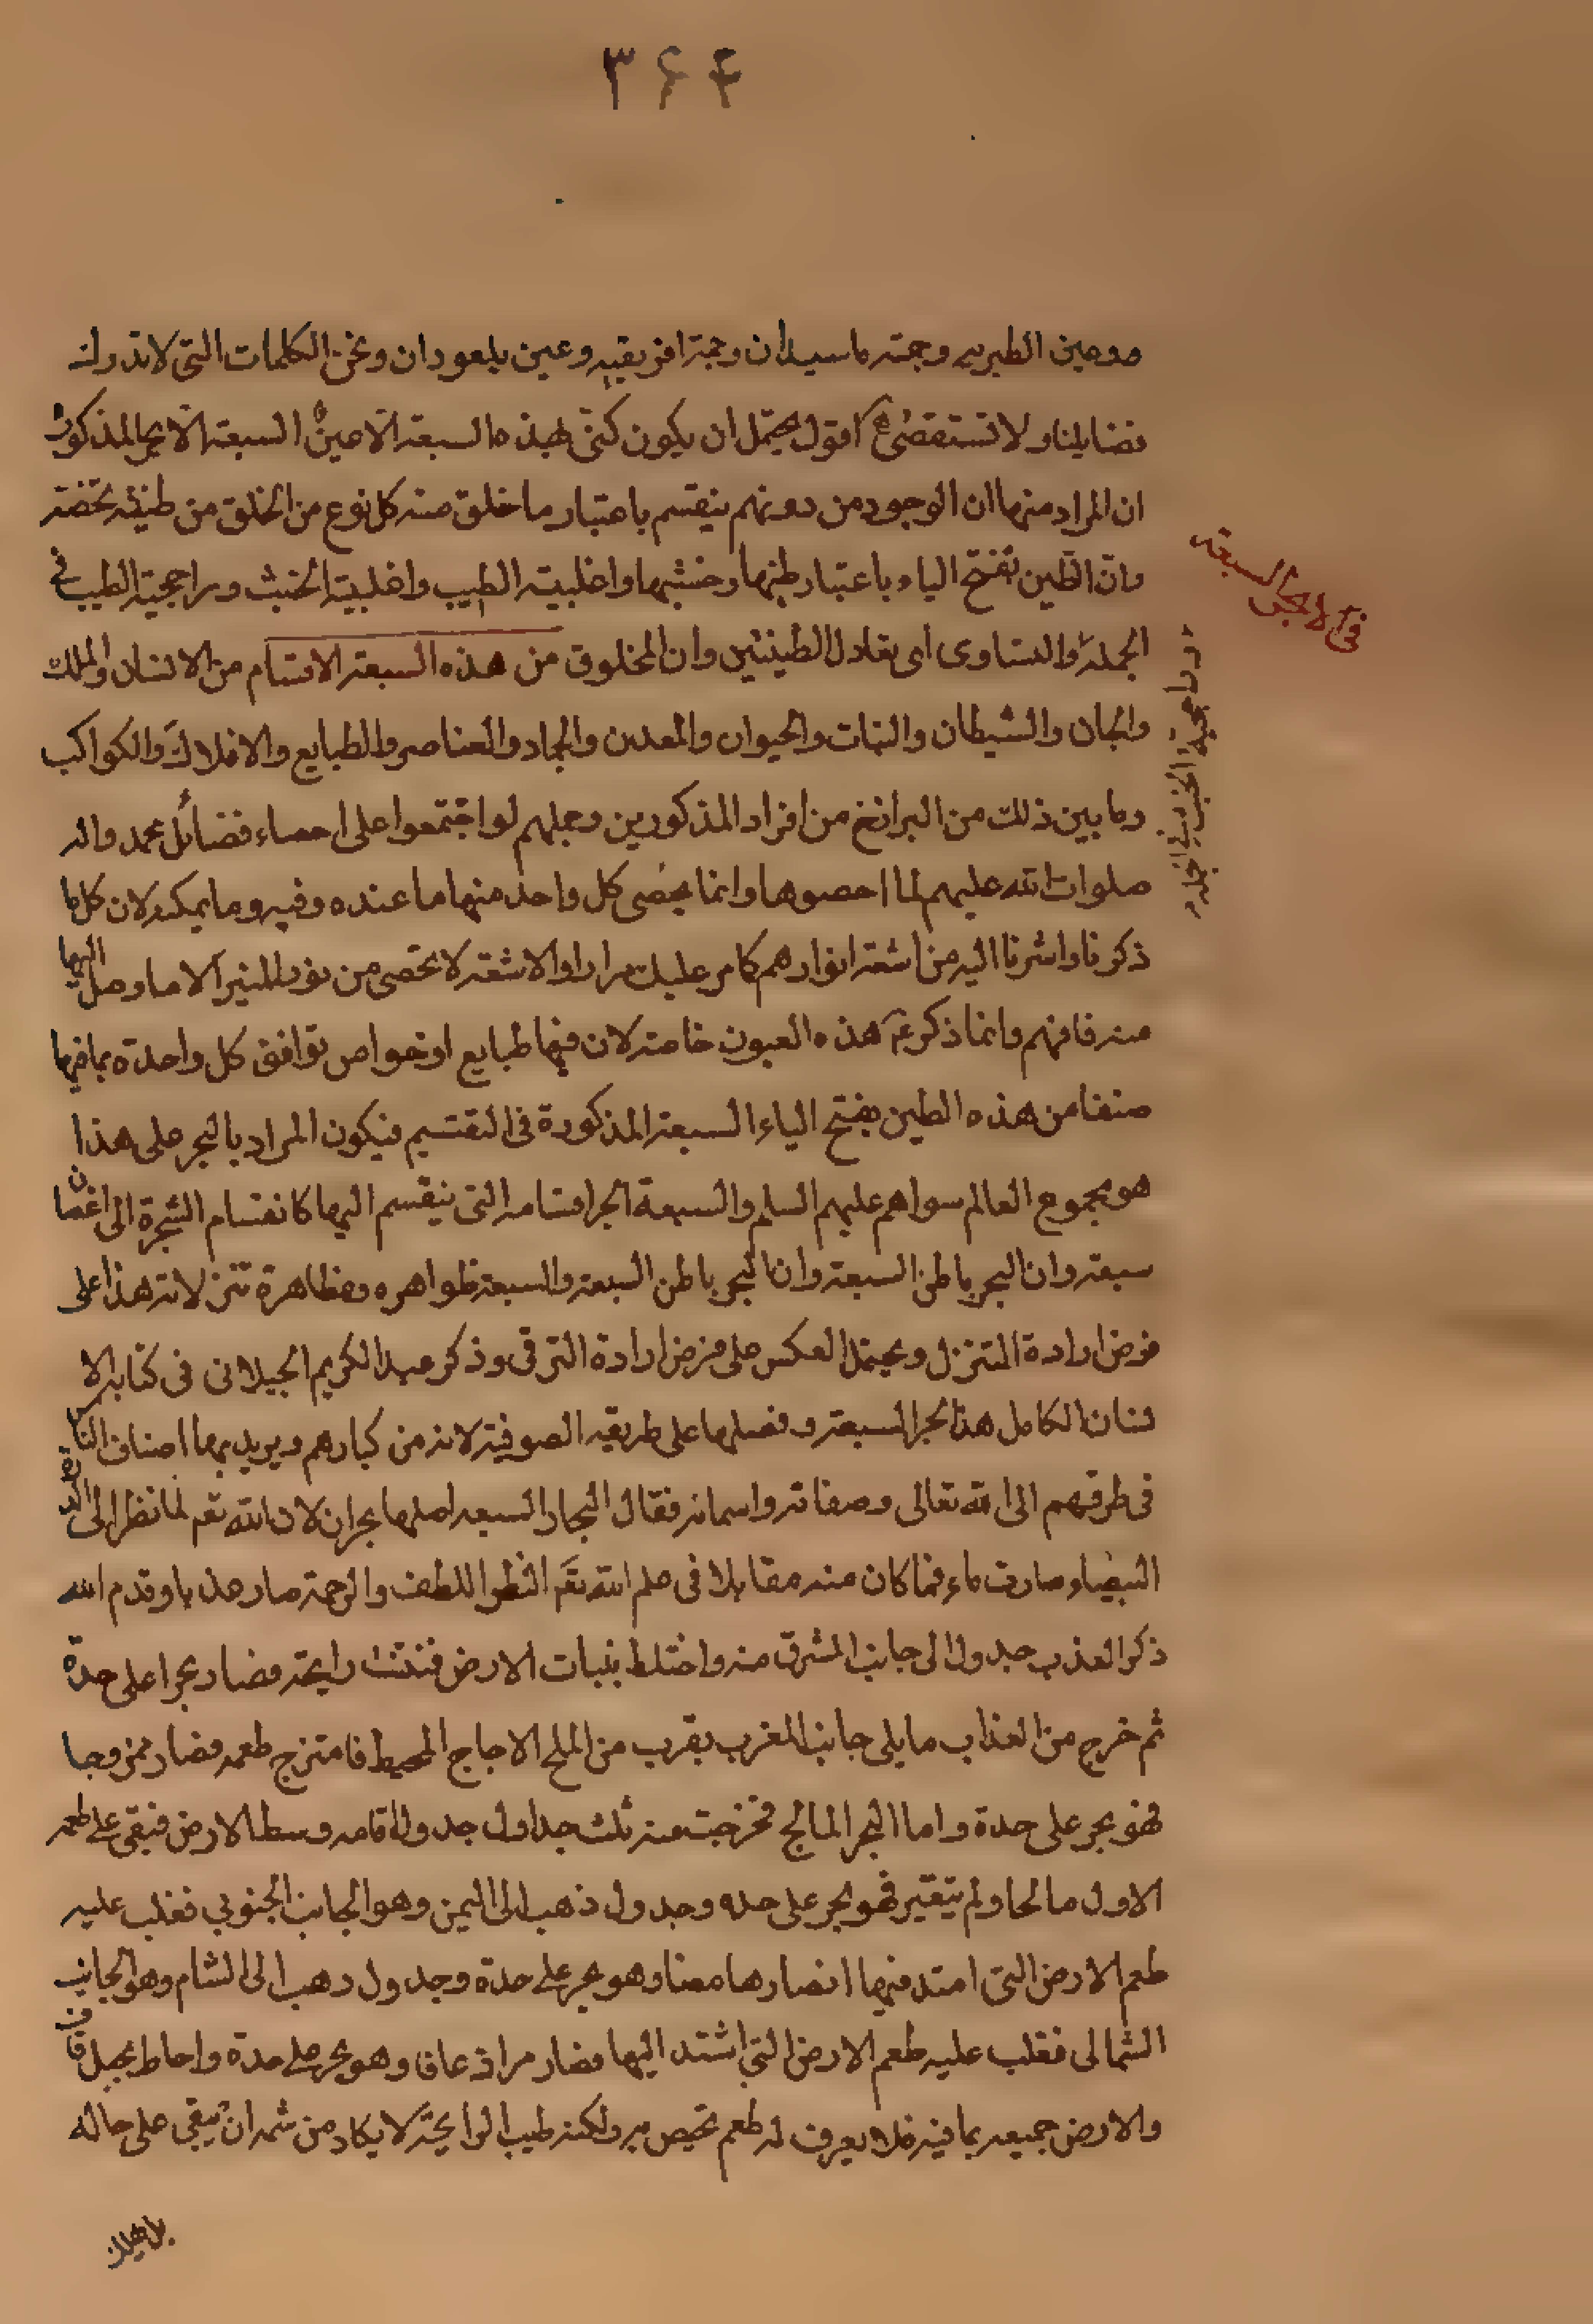 ۳۶۴
وعين الطبريه وحمته ماسيدان وحمة افريقيه وعين بلعوران ونحن الكلمات التى لا تدرك
فضايلنا ولا تستقصى اقول يحتمل ان يكون كنى بهذه السبعة الاعين السبعة الابحر المذكورة
ان المراد منها ان الوجود من دونهم ينقسم باعتبار ما خلق منه كل نوع من الخلق من طينة تخصه
وان الطين بفتح الياء باعتبار طيبها وخبثها واغلبية الطيب واغلبية الخبث وراجحية الطيب فى
الجملة والتساوى اى تعادل الطينتين وان المخلوق من هذه السبعة الاقسام من الانسان والملك
والجان والشيطان والنبات والحيوان والمعدن والجماد والعناصر والطبايع والافلاك والكواكب
وما بين ذلك من البرازخ من افراد المذكورين وجملهم لو اجتمعوا على احصاء فضائل محمد واله
صلوات الله عليهم لما احصوها وانما يحصى كل واحد منها ما عنده وفيه وما يمكنه لان كل ما
ذكرنا واشرنا اليه من اشعة انوارهم كما مر عليك مرارا والاشعة لا تحصى من نور المنير الا ما وصل اليها
منه فافهم وانما ذكر ع هذه العيون خاصة لان فيها طبايع او خواص توافق كل واحدة بما فيها
صنفا من هذه الطين بفتح الياء السبعة المذكورة فى التقسيم فيكون المراد بالبحر على هذا
هو مجموع العالم سواهم عليهم السلم والسبعة ابحر اقسامه التى ينقسم اليها كانقسام الشجرة الى اغصان
سبعة وان البحر باطن السبعة وان البحر باطن السبعة والسبعة ظواهره ومظاهرة تنزلاته هذا على
فرض ارادة التنزل ويحتمل العكس على فرض ارادة الترقى وذكر عبد الكريم الجيلانى فى كتابه الا
نسان الكامل هذا ابحر السبعة وفصلها على طريقه الصوفية لانه من كبارهم ويريد بها اصناف الناس
فى طرقهم الى الله تعالى وصفاته واسمائه فقال البحار السبعه اصلها بحران لان الله تعم لما نظر الى الدرة
البيضاء صارت ماء فما كان منه مقابلا فى علم الله تعم النظر اللطف والرحمة صار عذبا وقدم الله
ذكر العذب جدول الى جانب المشرق منه واختلط بنبات الارض فنتنت رايحته فصار بحرا على حدة
ثم خرج من العذاب مايلى جانب المغرب بقرب من الملح الاجاج المحيط فامتزج طعمه فصار ممزوجا
فهو بحر على حدة واما البحر المالح فخرجت منه ثلث جداول جدول اقامه وسط الارض فبقى على طعمه
الاول مالحا ولم يتغير فهو بحر على حده وجدول ذهب الى اليمن وهو الجانب الجنوبي فغلب عليه
طعم الارض التى امتد فيها فصار حامضا وهو بحر على حدة وجدول ذهب الى الشام وهو الجانب
الشمالى فغلب عليه طعم الارض التى اشتد اليها فصار مرا ذعافا وهو بحر على حدة واحاط بجبل قاف
والارض جميعه بما فيه فلا يعرف له طعم تحيص به ولكنه طيب الرايحة لا يكاد من شمه ان يبقى على حاله
فى الابحر السبعة
وراجحية الخبث فى الجملة